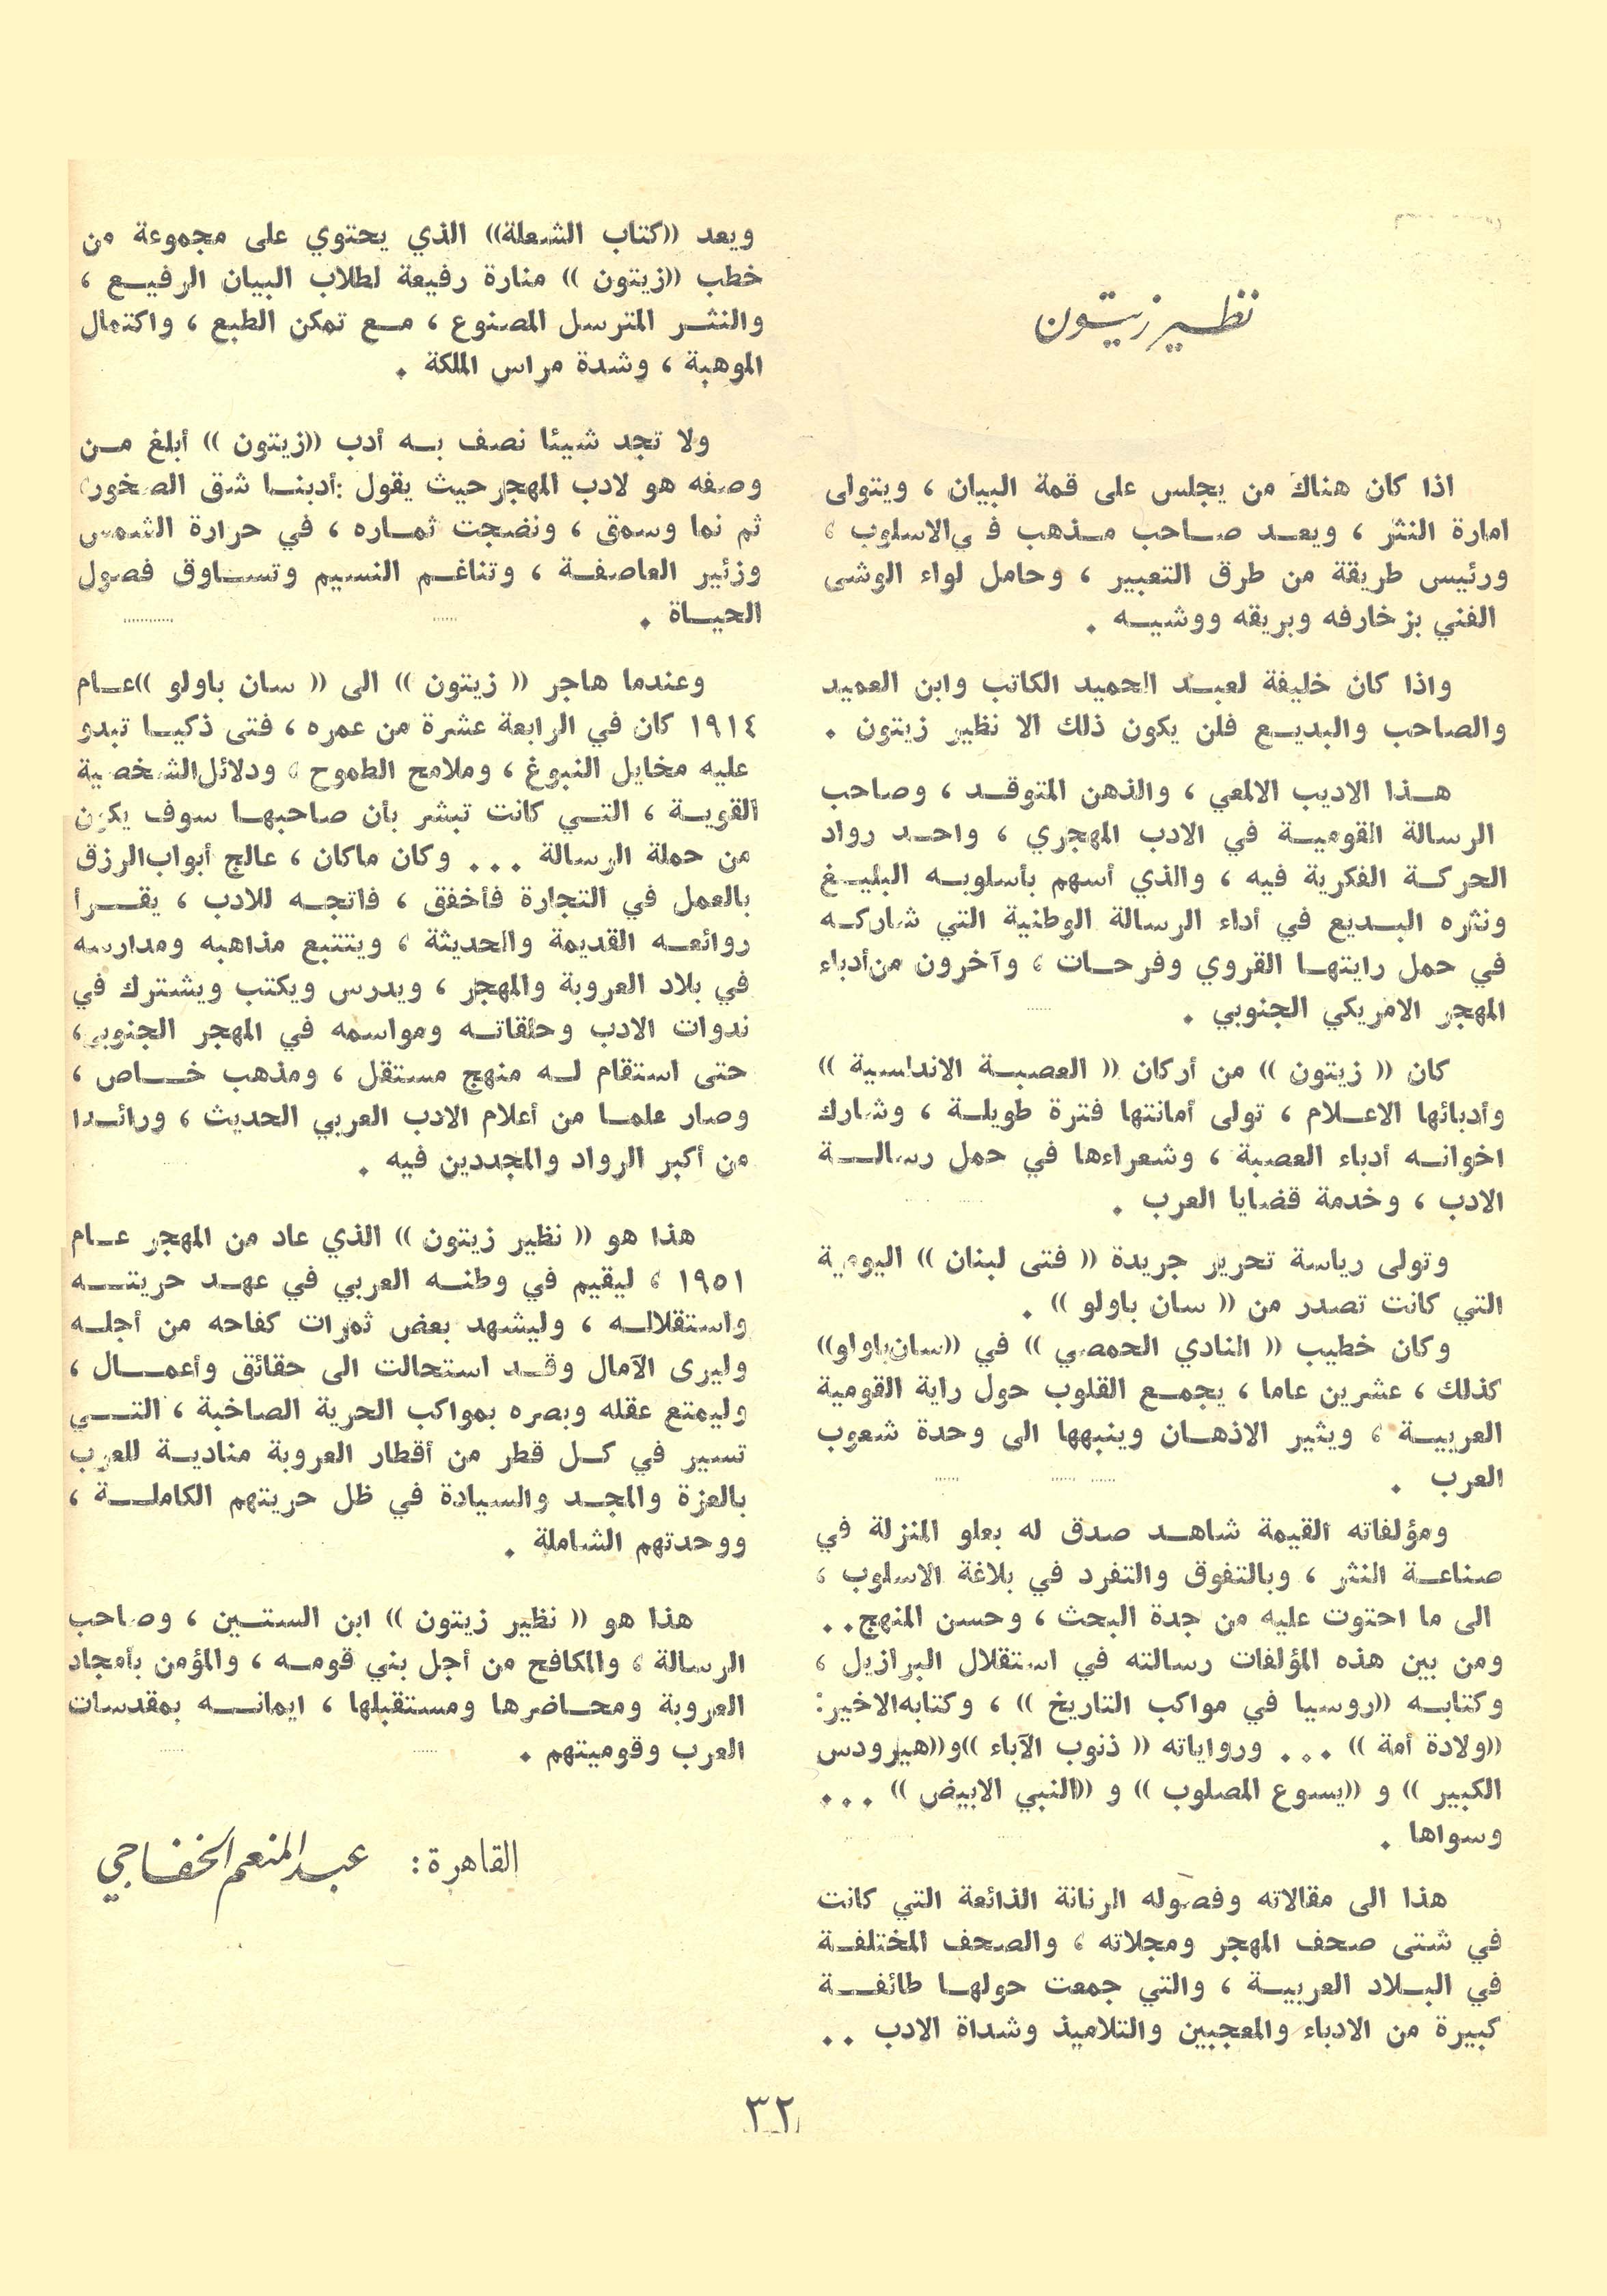 نظير زيتون
اذا كان هناك من يجلس على قمة البيان ، ويتولى
امارة النثر ، ويعد صاحب مذهب في الاسلوب ،
ورئيس طريقة من طرق التعبير ، وحامل لواء الوشى
الفني بزخارفه وبريقه ووشيه .
واذا كان خليفة لعبد الحميد الكاتب وابن العميد
والصاحب والبديع فلن يكون ذلك الا نظير زيتون .
هذا الاديب الالمعي ، والذهن المتوقد ، وصاحب
الرسالة القومية في الادب المهجري ، واحد رواد
الحركة الفكرية فيه ، والذي أسهم بأسلوبه البليغ
ونثره البديع في أداء الرسالة الوطنية التي شاركه
في حمل رايتها القروي وفرحات ، وآخرون من أدباء
المهجر الامريكي الجنوبي .
كان (( زيتون )) من أركان (( العصبة الاندلسية ))
وأدبائها الاعلام ، تولى أمانتها فترة طويلة ، وشارك
اخوانه أدباء العصبة ، وشعراءها في حمل رسالة
الادب ، وخدمة قضايا العرب .
وتولى رياسة تحرير جريدة (( فتى لبنان )) اليومية
التي كانت تصدر من (( سان باولو )) .
وكان خطيب (( النادي الحمصي )) في ((سان باولو))
كذلك ، عشرين عاما ، يجمع القلوب حول راية القومية
العربية ، ويثير الاذهان وينبهها الى وحدة شعوب
العرب .
ومؤلفاته القيمة شاهد صدق له بعلو المنزلة في
صناعة النثر ، وبالتفوق والتفرد في بلاغة الاسلوب ،
الى ما احتوت عليه من جدة البحث ، وحسن المنهج ..
ومن بين هذه المؤلفات رسالته في استقلال البرازيل ،
وكتابه ((روسيا في مواكب التاريخ )) ، وكتابه الاخير:
((ولادة أمة )) ... ورواياته (( ذنوب الآباء ))و((هيرودس
الكبير )) و ((يسوع المصلوب )) و ((النبي الابيض )) ...
وسواها .
هذا الى مقالاته وفصوله الرنانة الذائعة التي كانت
في شتى صحف المهجر ومجلاته ، والصحف المختلفة
في البلاد العربية ، والتي جمعت حولها طائفة
كبيرة من الادباء والمعجبين والتلاميذ وشداة الادب ..
ويعد ((كتاب الشعلة)) الذي يحتوي على مجموعة من
خطب ((زيتون )) منارة رفيعة لطلاب البيان الرفيع ،
والنثر المترسل المصنوع ، مع تمكن الطبع ، واكتمال
الموهبة ، وشدة مراس الملكة .
ولا تجد شيئا نصف به أدب ((زيتون )) أبلغ من
وصفه هو لادب المهجر حيث يقول :أدبنا شق الصخور،
ثم نما وسمق ، ونضجت ثماره ، في حرارة الشمس
وزئير العاصفة ، وتناغم النسيم وتساوق فصول
الحياة .
وعندما هاجر (( زيتون )) الى (( سان باولو ))عام
١٩١٤ كان في الرابعة عشرة من عمره ، فتى ذكيا تبدو
عليه مخايل النبوغ ، وملامح الطموح ، ودلائل الشخصية
القوية ، التي كانت تبشر بأن صاحبها سوف يكون
من حملة الرسالة ... وكان ماكان ، عالج أبواب الرزق
بالعمل في التجارة فأخفق ، فاتجه للادب ، يقرأ
روائعه القديمة والحديثة ، ويتتبع مذاهبه ومدارسه
في بلاد العروبة والمهجر ، ويدرس ويكتب ويشترك في
ندوات الادب وحلقاته ومواسمه في المهجر الجنوبي،
حتى استقام له منهج مستقل ، ومذهب خاص ،
وصار علما من أعلام الادب العربي الحديث ، ورائدا
من أكبر الرواد والمجددين فيه .
هذا هو (( نظير زيتون )) الذي عاد من المهجر عام
١٩٥١ ، ليقيم في وطنه العربي في عهد حريته
واستقلاله ، وليشهد بعض ثمرات كفاحه من أجله
وليرى الآمال وقد استحالت الى حقائق وأعمال ،
وليمتع عقله وبصره بمواكب الحرية الصاخبة ، التي
تسير في كل قطر من أقطار العروبة منادية للعرب
بالعزة والمجد والسيادة في ظل حريتهم الكاملة ،
ووحدتهم الشاملة .
هذا هو (( نظير زيتون )) ابن الستين ، وصاحب
الرسالة ، والمكافح من أجل بني قومه ، والمؤمن بأمجاد
العروبة ومحاضرها ومستقبلها ، ايمانه بمقدسات
العرب وقوميتهم .
القاهرة : عبد المنعم الخفاجي
٣٢